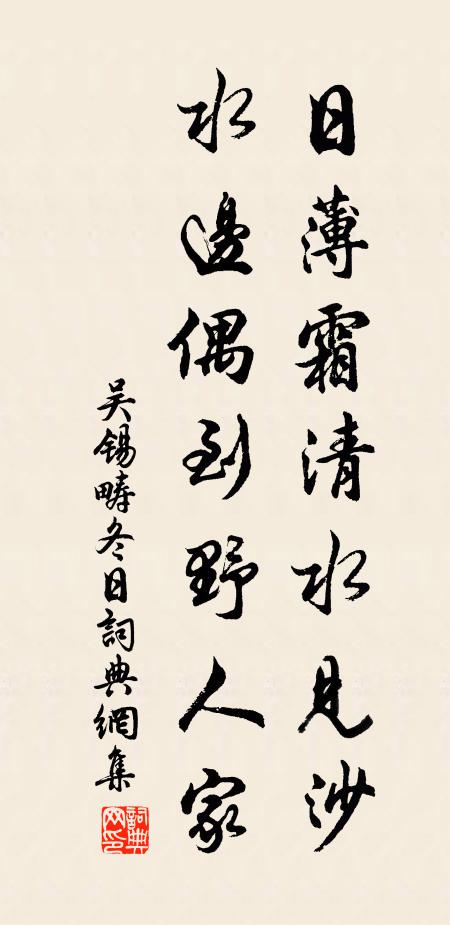 日薄霜清水見沙
水邊偶到野人家
吳錫疇冬日詞典網集
詞典網印